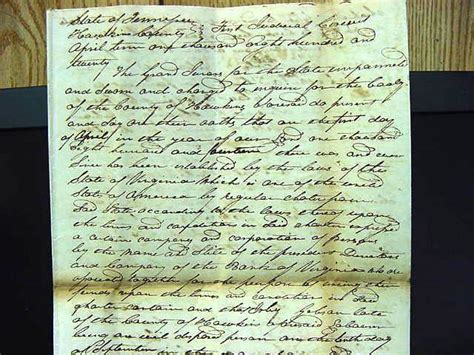 State of Tennessee } First Judicial Circuit
Hawkins County } 
April term one thousand eight hundred and
twenty
The Grand Jurors for the State impannelled
and sworn and charged to inquire for the body
of the County of Hawkins aforesaid do present
and say on their oaths, that on the first day
of April in the year of our Lord one thousand
eight hundred and there was and ever
since has been established by the laws of the
State of Virginia which is one of the united
States of America by regular charter from
Said State according to the laws thereof upon
the terms and conditions in said charter expressed
a certain company and corporation of persons
by the name and stile of the president Directors
and Company of the Bank of Virginia who
together for the purpose of using their
funds upon the terms and condition in Said
charter certain and that John Gibson late
of the County of Hawkins aforesaid labourer
being an evil disposed person on the day
of September in the